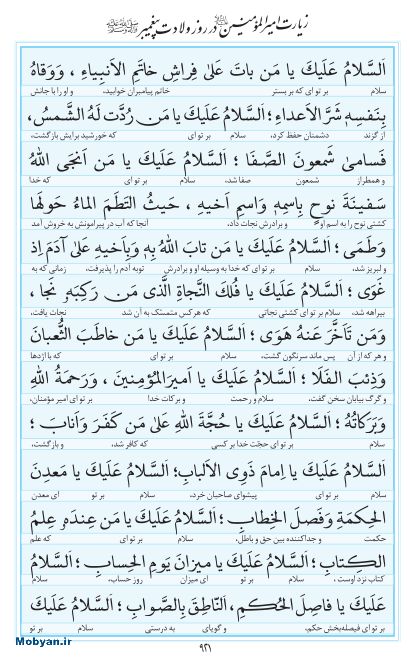 زیارت امیرالمؤمنین در روز ولادت پیغمبر
اَلسَّلامُ عَلَيكَ يا مَن باتَ عَلىٰ فِراشِ خاتَمِ الاَنبِياءِ ، وَوَقاهُ
سلام بر تو ای که بر بستر خاتم پیامبران خوابید، و او را با جانش
بِنَفسِهٖ شَرَّ الاَعداءِ؛ اَلسَّلامُ عَلَيكَ يا مَن رُدَّت لَهُ الشَّمسُ،
از گزند دشمنان حفظ کرد، سلام بر تو ای که خورشید برایش بازگشت،
فَسامىٰ شَمعونَ الصَّفا ؛ اَلسَّلامُ عَلَيكَ يا مَن اَنجَى اللّٰهُ
و همطراز شمعون صفا شد، سلام بر تو ای که خدا
سَفينَةَ نوحٍ بِاسمِهٖ وَاسمِ اَخيهِ ، حَيثُ التَطَمَ الماءُ حَولَها
کشتی نوح را به اسم او و برادرش نجات داد، آنجا که آب در پیرامونش به خروش آمد
وَطَمىٰ ؛ اَلسَّلامُ عَلَيكَ يا مَن تابَ اللّٰهُ بِهٖ وَبِاَخيهِ عَلىٰ آدَمَ اِذ
و لبریز شد، سلام بر تو ای که خدا به وسیله او و برادرش توبه آدم را پذیرفت، زمانی که به
غَوىٰ ؛ اَلسَّلامُ عَلَيكَ يا فُلكَ النَّجاةِ الَّذى مَن رَكِبَهٗ نَجا ،
بیراهه شد، سلام بر تو ای کشتی نجاتی که هرکس متمسک به آن شد نجات یافت،
وَمَن تَاَخَّرَ عَنهُ هَوىٰ ؛ اَلسَّلامُ عَلَيكَ يا مَن خاطَبَ الثُّعبانَ
و هر که از آن پس ماند سرنگون گشت، سلام بر تو ای که با اژدها
وَذِئبَ الفَلا ؛ اَلسَّلامُ عَلَيكَ يا اَميرَالمُؤمِنينَ ، وَرَحمَةُ اللّٰهِ
و گرگ بیابان سخن گفت، سلام و رحمت و برکات خدا بر تو ای امیر مؤمنان،
وَبَرَكاتُهُ ؛ اَلسَّلامُ عَلَيكَ يا حُجَّةَ اللّٰهِ عَلىٰ مَن كَفَرَ وَاَنابَ ؛
سلام بر تو ای حجّت خدا بر کسی که کافر شد، و بازگشت،
اَلسَّلامُ عَلَيكَ يا اِمامَ ذَوِى الاَلبابِ؛ اَلسَّلامُ عَلَيكَ يا مَعدِنَ
سلام بر تو ای پیشوای صاحبان خرد، سلام بر تو ای معدن
الحِكمَةِ وَفَصلَ الخِطابِ؛ اَلسَّلامُ عَلَيكَ يا مَن عِندَهٗ عِلمُ
حکمت و جداکننده بین حق و باطل، سلام بر تو ای که علم
الكِتابِ؛ اَلسَّلامُ عَلَيكَ يا ميزانَ يَومِ الحِسابِ ؛ اَلسَّلامُ
کتاب نزد اوست ، سلام بر تو ای میزان روز حساب، سلام
عَلَيكَ يا فاصِلَ الحُكمِ، اَلنّاطِقَ بِالصَّوابِ ؛ اَلسَّلامُ عَلَيكَ
بر تو ای فیصله‌بخش حکم، و گویای به درستی سلام بر تو
۹۲۱
Mobyan.ir